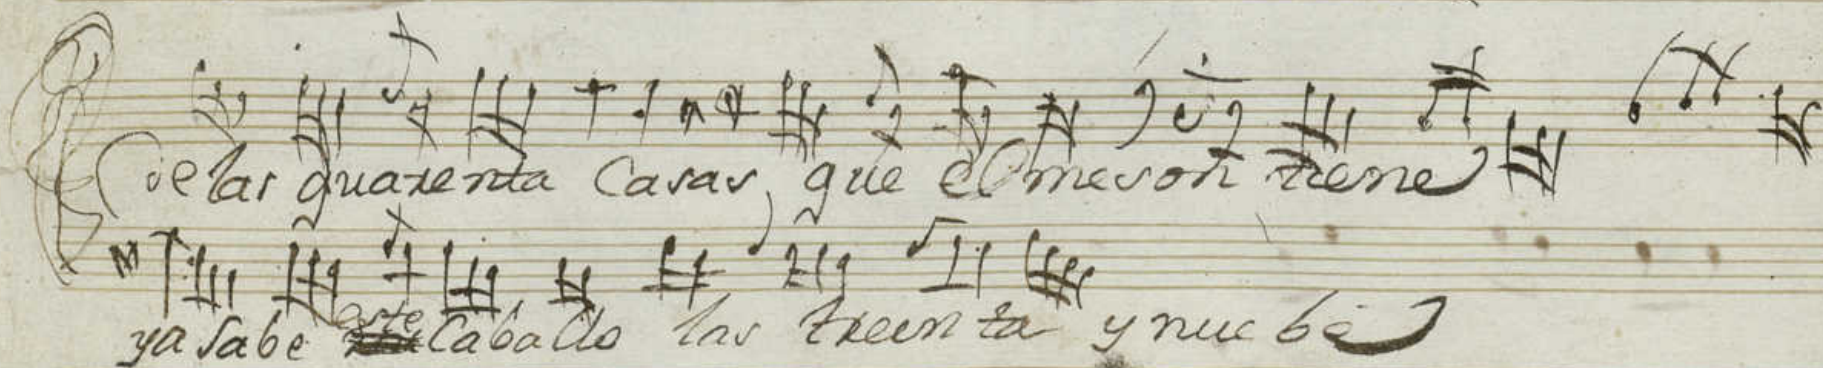 de las quarenta Casas, que el meson tiene
ya sabe este Caballo las treinta y nuebe